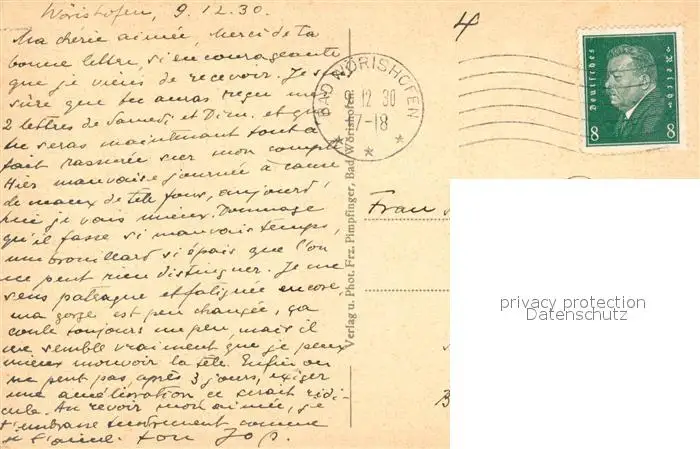 Wörishofen, 9.12.30.
Ma chérie aimée, Merci de ta
bonne lettre, si encourageante
que je viens de recevoir. Je suis
sûre que tu auras reçu mes
2 lettres de Samedi et Dim. et que
tu seras maintenant tout à
fait rassurée sur mon compte.
Hier mauvaise journée à cause
de maux de tête fous, aujourd'
hui je vais mieux. Dommage
qu'il fasse si mauvais temps,
un brouillard si épais que l'on
ne peut rien distinguer. Je me
sens patraque et fatiguée encore
ma gorge est peu changée, ça
coule toujours un peu, mais il
me semble vraiment que je peux
mieux mouvoir la tête. Enfin on
ne peut pas, après 3 jours, exiger
une amélioration ce serait ridi-
cule. Au revoir mon aimée, je
t'embrasse tendrement comme
je t'aime. ton
Verlag u. Phot. Frz. Pimpfinger, Bad Wörishofen.
4
BAD WÖRISHOFEN
9 12 30
17-18
Deutsches Reich
8 8
Frau
B
privacy protection
Datenschutz